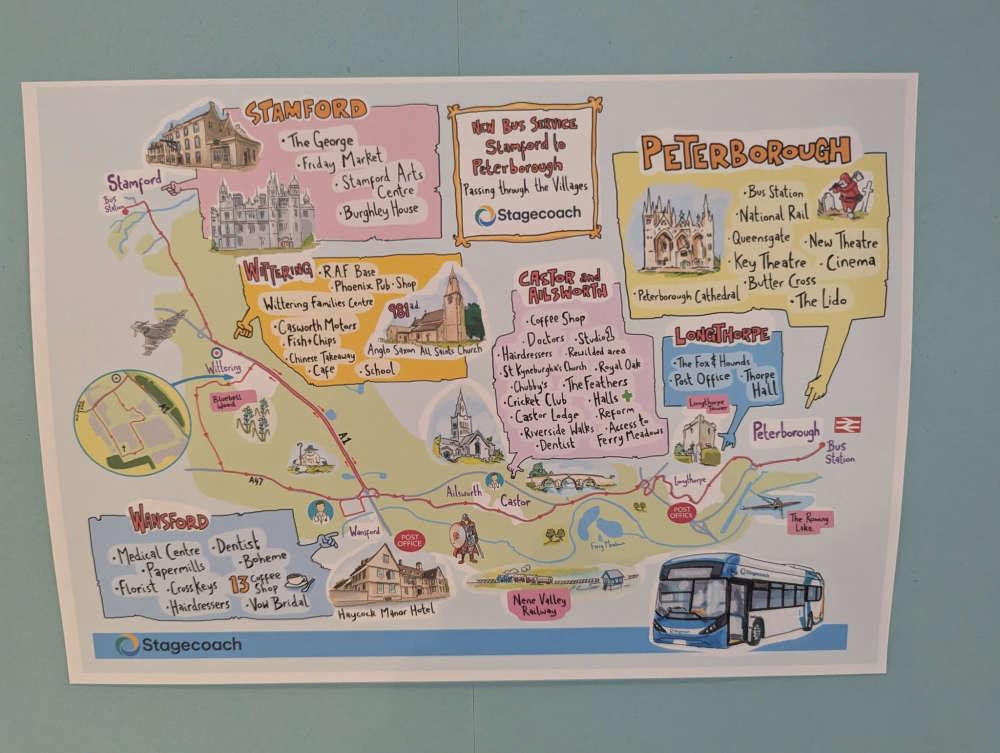 STAMFORD
• The George
• Friday Market
• Stamford Arts
Centre
• Burghley House
NEW BUS SERVICE
Stamford to
Peterborough
Passing through the Villages
Stagecoach
PETERBOROUGH
• Bus Station
• National Rail
• Queensgate
• New Theatre
• Key Theatre
• Cinema
• Butter Cross
• Peterborough Cathedral
• The Lido
Stamford
Bus
Station
WITTERING
• R.A.F Base
• Phoenix Pub • Shop
Wittering Families Centre
• Casworth Motors
• Fish + Chips
• Chinese Takeaway
• Cafe
• School
981 ad
Anglo Saxon All Saints Church
CASTOR and
AILSWORTH
• Coffee Shop
• Doctors • Studio
• Hairdressers • Rewilded area
• St Kyneburgha's Church • Royal Oak
• Chubby's • The Feathers
• Cricket Club • Halls +
• Castor Lodge • Reform
• Riverside Walks • Access to
Ferry Meadows
• Dentist
LONGTHORPE
• The Fox & Hounds
• Post Office
• Thorpe
Hall
Longthorpe
Tower
Wittering
Bluebell
Wood
A1
A1
A47
Peterborough
Bus
Station
Longthorpe
POST
OFFICE
The Rowing
Lake
Ailsworth
Castor
Ferry Meadows
Wansford
POST
OFFICE
WANSFORD
• Medical Centre
• Dentist
• Papermills
• Boheme
• Florist
• Cross Keys
13 Coffee
Shop
• Hairdressers
• Vow Bridal
Haycock Manor Hotel
Nene Valley
Railway
Stagecoach
Stagecoach